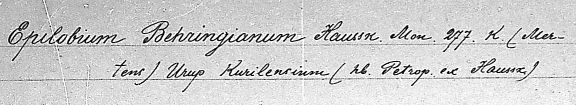 Epilobium Behringianum Haussx. Mon. 277. K. (Mer-
tens) Urup Kurilensium (hb. Petrop. ex Haussx)